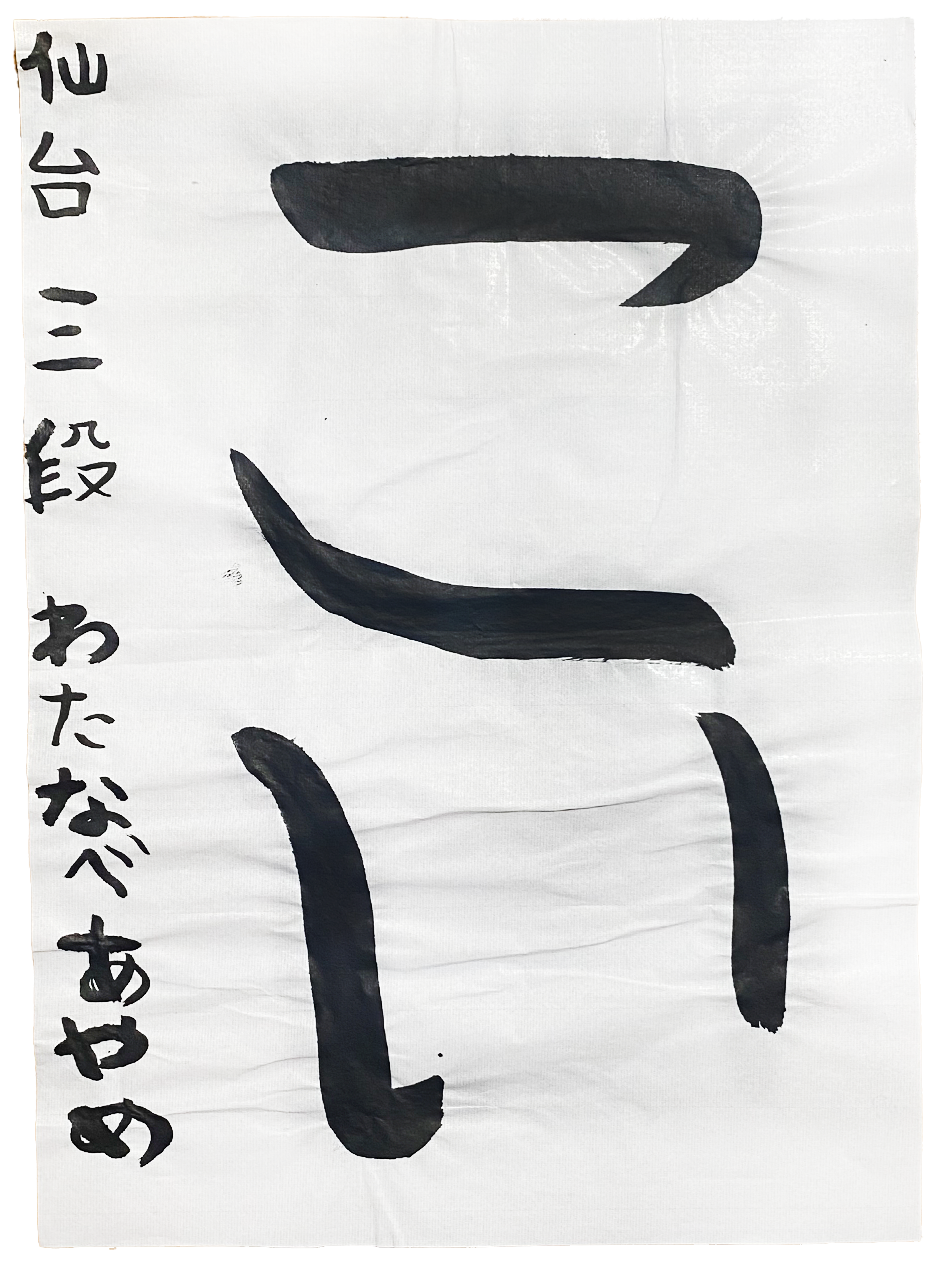 こい
仙台 三段 わたなべあやめ